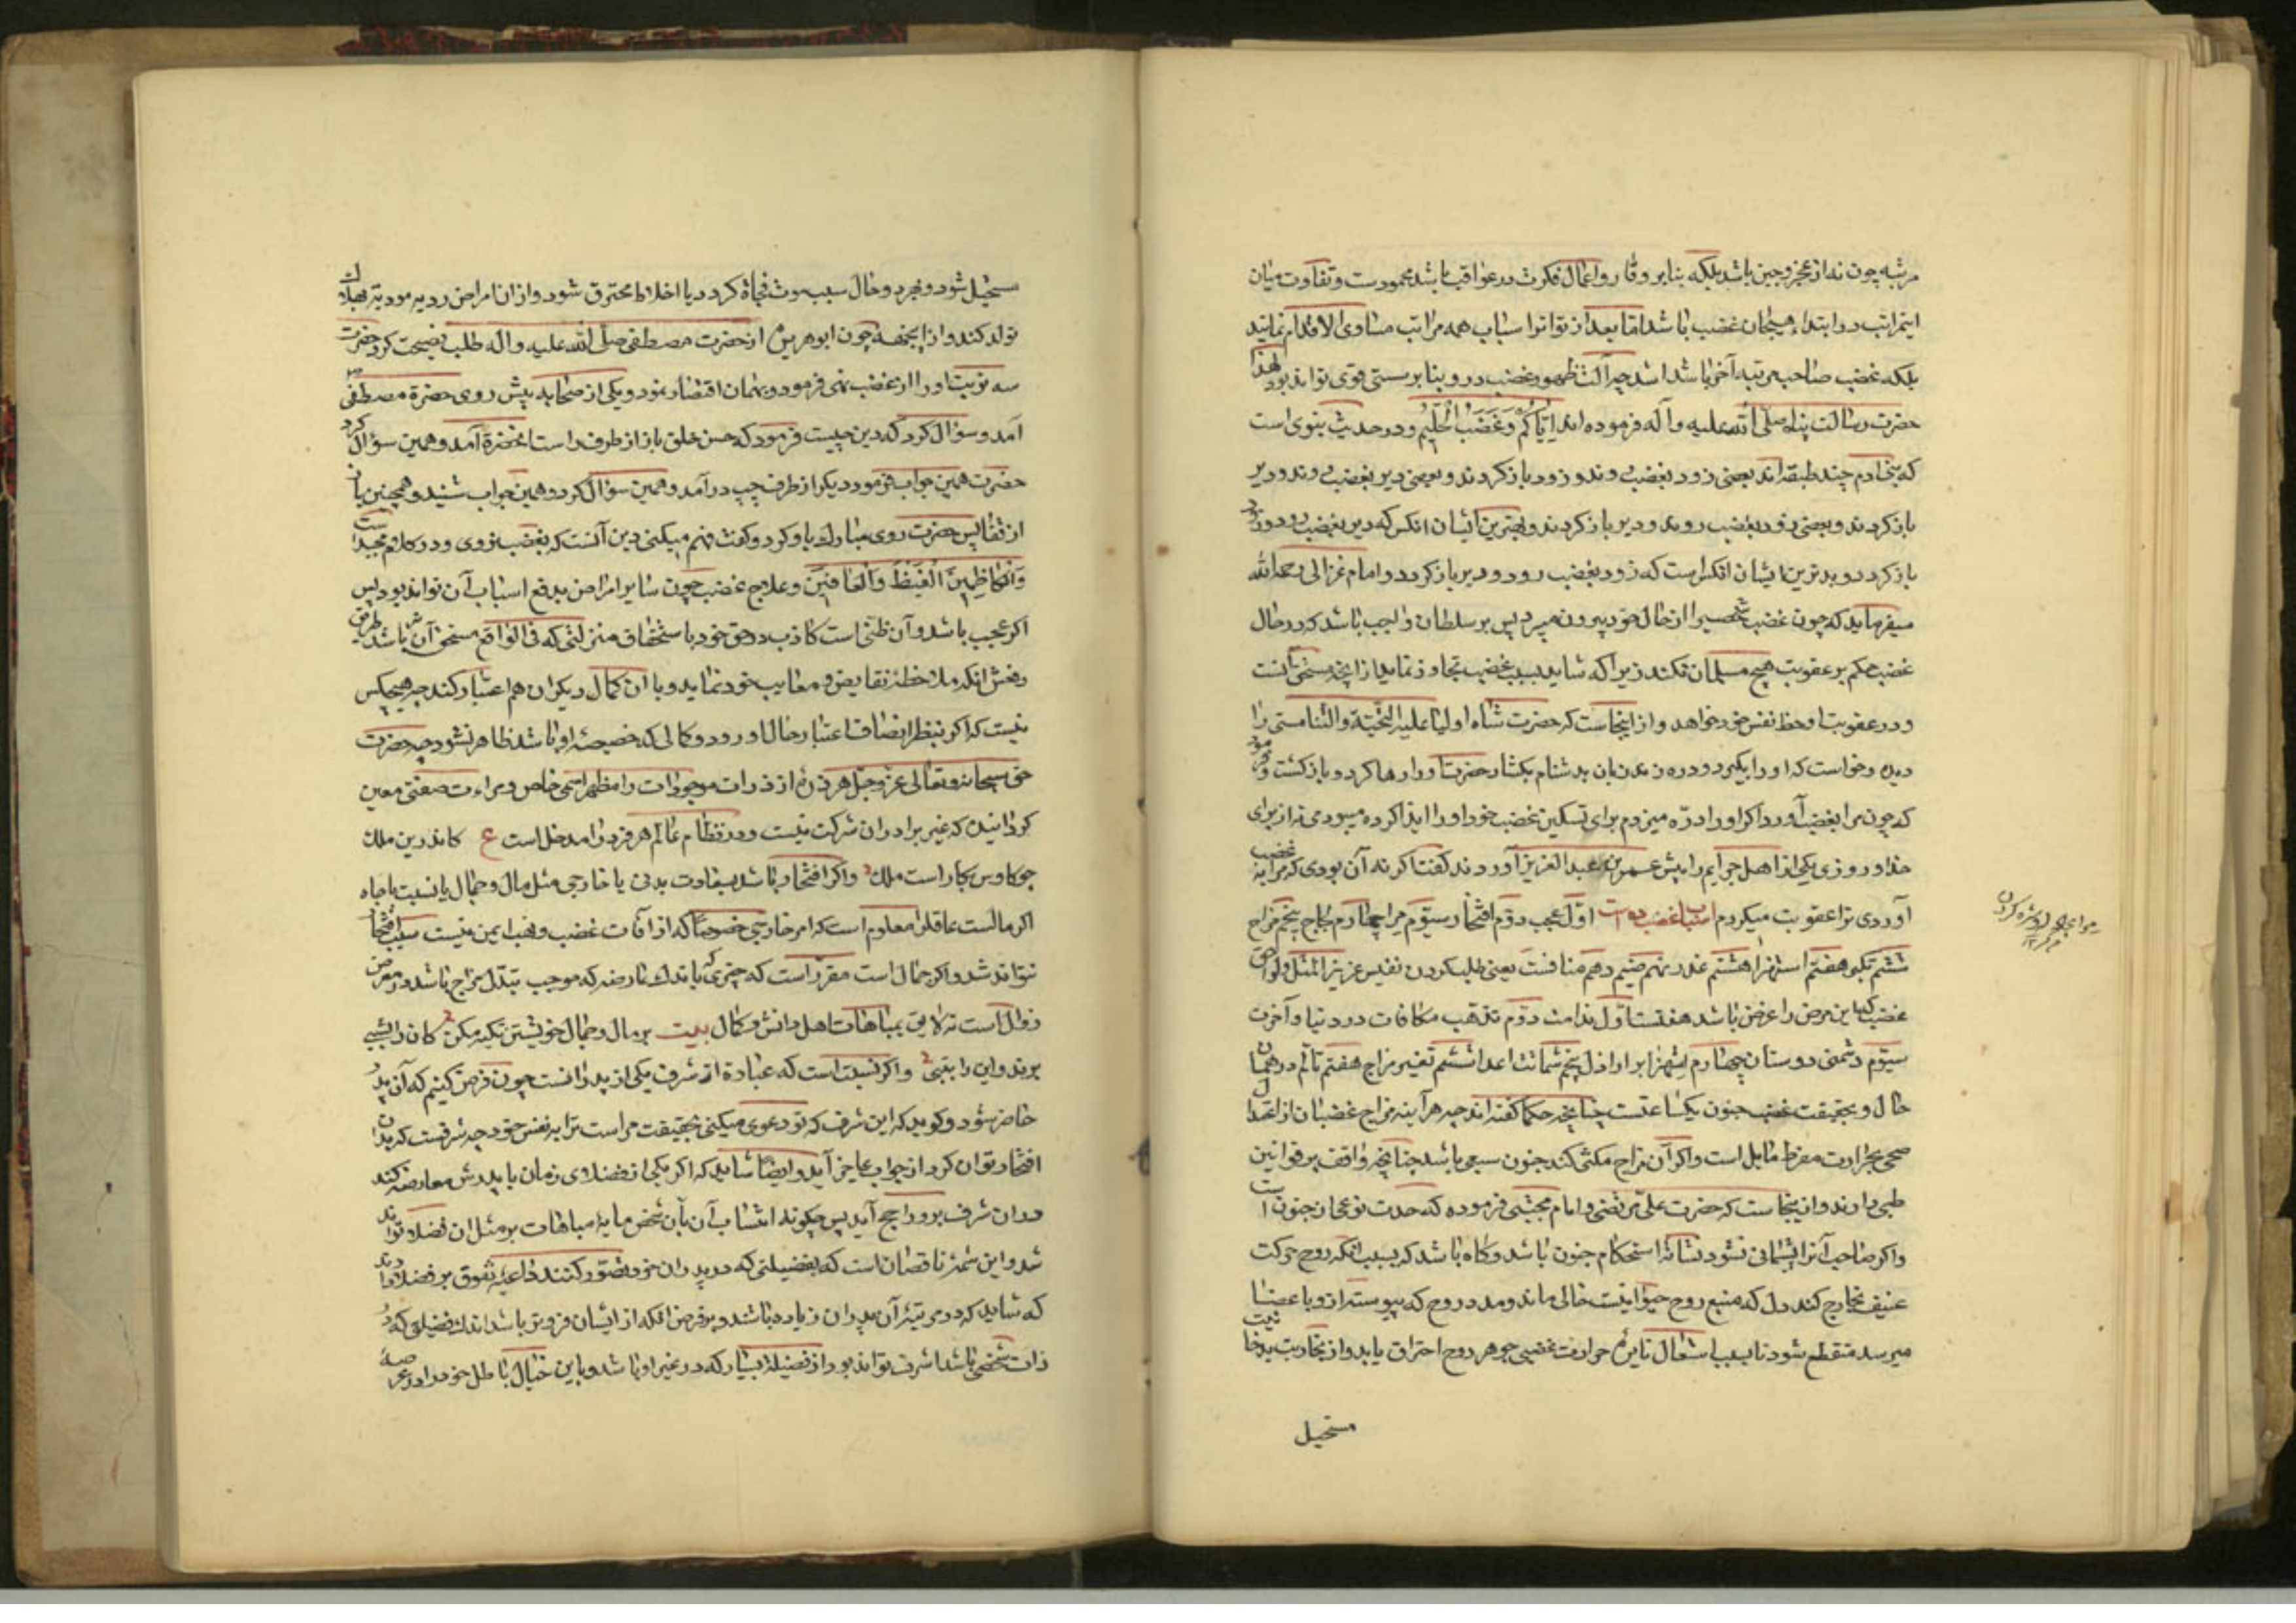 مرتبه چون نه از عجز و جبن باشد بلکه بنابر وقار و اعمال فکرت در عواقب باشد محمودست و تفاوت میان
اینمراتب در ابتداء هیجان غضب باشد اما بعد از تواتر اسباب همه مراتب متساوی الاقدام نمایند
بلکه غضب صاحب مرتبه آخر باشد اشد چه آلت ظهور غضب درو بنابر سستی قوی تواند بود لهذا
حضرت رسالت پناه صلی الله علیه و آله فرموده اند ایاکم و غضب الحلیم و در حدیث نبوی است
که بنی ادم چند طبقه اند بعضی زود بغضب روند و زود بازکردند و بعضی دیر بغضب روند و دیر
بازکردند و بعضی زود بغضب روند و دیر بازکردند و بهترین ایشان انکس که دیر بغضب رود و زود
بازکردد و بدترین ایشان انکس است که زود بغضب رود و دیر بازکردد و امام غزالی رحمه الله
میفرماید که چون غضب شخصیرا از حال خود بیرون میبرد پس بر سلطان واجب باشد که در حال
غضب حکم بر عقوبت هیچ مسلمان نکند زیرا که شاید بسبب غضب تجاوز نماید از انچه مستحق آنست
و در عقوبت او حظ نفس خود خواهد و از اینجاست که حضرت شاه اولیا علیه التحیة و الثنا مستی را
دید و خواست که او را بگیرد و دره زند زبان بدشنام بکشاد حضرت او را رها کرد و بازکشت و فرمود
که چون مرا بغضب آورد اکر او را درّه میزدم برای تسکین غضب خود او را ایذا کرده میبودمی نه از برای
خدا و روزی یکی از اهل جرایم را پیش عمر بن عبد العزیز آوردند کفت اکر نه آن بودی که مرا بغضب
آوردی ترا عقوبت میکردم اسباب غضب ده است اوّل عجب دوّم افتخار سیوّم مرا چهارم لجاج پنجم مزاح
ششم تکبر هفتم استهزا هشتم غدر نهم ضیم دهم منافست یعنی طلب کردن نفیس عزیز المثل و لواحق
غضب که این مرض را عرض باشد هفتست اوّل ندامت دوّم تذهب مکافات در دنیا و آخرت
سیوّم دشمنی دوستان چهارم استهزا بر اراذل پنجم شماتت اعدا ششم تغیر مزاج هفتم تالّم در همان
حال و بحقیقت غضب جنون یکساعتست چنانچه حکما کفته اند چه هرآینه مزاج غضبان از اعتدال
صحی بحرارت مفرط مایل است و اکر آن مزاج مکثی کند جنون سبعی باشد چنانچه واقف بر قوانین
طبی داند و از اینجاست که حضرت علی مرتضی و امام مجتبی فرموده که حدت نوعی از جنون است
و اکر صاحب آنرا پشیمانی نشود نشانه استحکام جنون باشد و کاه باشد که بسبب انکه روح حرکت
عنیف بخارج کند دل که منبع روح حیوانیست خالی ماند و مدد روح که پیوسته ازو باعضا
میرسد منقطع شود تا بسبب اشتعال نایره حرارت غضبی جوهر روح احتراق یابد و از بخاریت بدخانیت
مستحیل
سحیل شود و بمجرد و حال سبب موت فجاة کردد یا اخلاط محترق شود و ازان امراض ردیه مودیه بهلاک
تولد کند و از اینجهة چون ابو هریره از حضرت مصطفی صلی الله علیه و اله طلب نصیحت کرد حضرت
سه نوبت او را از غضب نهی فرمود و بهمان اقتصار نمود و یکی از صحابه پیش روی حضرة مصطفی
آمد و سؤال کرد که دین چیست فرمود که حسن خلق باز از طرف راست انحضرة آمد و همین سؤال کرد
حضرت همین جواب فرمود دیکر از طرف چپ درآمد و همین سؤال کرد و همین جواب شنید و همچنین باز
از قفا پس حضرت روی مبارک باو کرد و کفت فهم میکنی دین آنست که بغضب نروی و در کلام مجید است
وَالْکَاظِمِینَ الْغَیْظَ وَالْعَافِینَ و علاج غضب چون سایر امراض بدفع اسباب آن تواند بود پس
اکر عجب باشد و آن ظنی است کاذب در حق خود باستحقاق منزلتی که فی الواقع مستحق آن نباشد طریق
دفعش انکه ملاحظه نقایض و معایب خود نماید و با ان کمال دیکران هم اعتبار کند چه هیچکس
نیست که اکر بنظر انصاف اعتبار حال او رود و کمالی که خصیصه او باشد ظاهر نشود چه حضرت
حق سبحانه و تعالی عز و جل هر ذره از ذرات موجودات را مظهر اسمی خاص و مراءت صفتی معین
کردانیده که غیر برا دران شرکت نیست و در نظام عالم هر فرد را مدخل است ع کاندرین ملک
چو طاوس بکار است مکس و اکر افتخار باشد بسعادت بدنی یا خارجی مثل مال و جمال یا نسبت یا جاه
اکر مالست عاقلرا معلوم است که امر خارجی خصوصا که از آفات غضب و نهب ایمن نیست سبب افتخار
نتواند شد و اکر جمال است مقرّر است که چیزی که باندک عارضه که موجب تبدّل مزاج باشد در معرض
زوال است نه لایق بمباهات اهل دانش و کمال بیت بر مال و جمال خویشتن تکیه مکن کان را بشبی
برند و این را بتبی و اکر نسبت است که عبادة از شرف یکی از پدرانست چون فرض کنیم که آن پدر
حاضر شود و کوید که این شرف که تو دعوی میکنی بحقیقت مراست ترا بنفس خود چه شرفست که بدان
افتخار توان کرد از جواب عاجز آید و ایضا شاید که اکر یکی از فضلای زمان با پدرش معارضه کند
دران شرف برو راجح آید پس چکونه انتساب آن بآن شخص مایه مباهات بر مثل ان فضلا تواند
شد و این شمه نافصان است که بفضیلتی که در پدران خود تصوّر کنند داعیه تفوق بر فضلا دارند
که شاید که در مرتبه آن پدران زیاده باشند و بر فرض انکه از ایشان فروتر باشد اندک فضیلتی که در
ذات شخصی باشد اشرف تواند بود از فضیلة بسیار که در غیر او باشد و باین خیال باطل خود را در عرصه